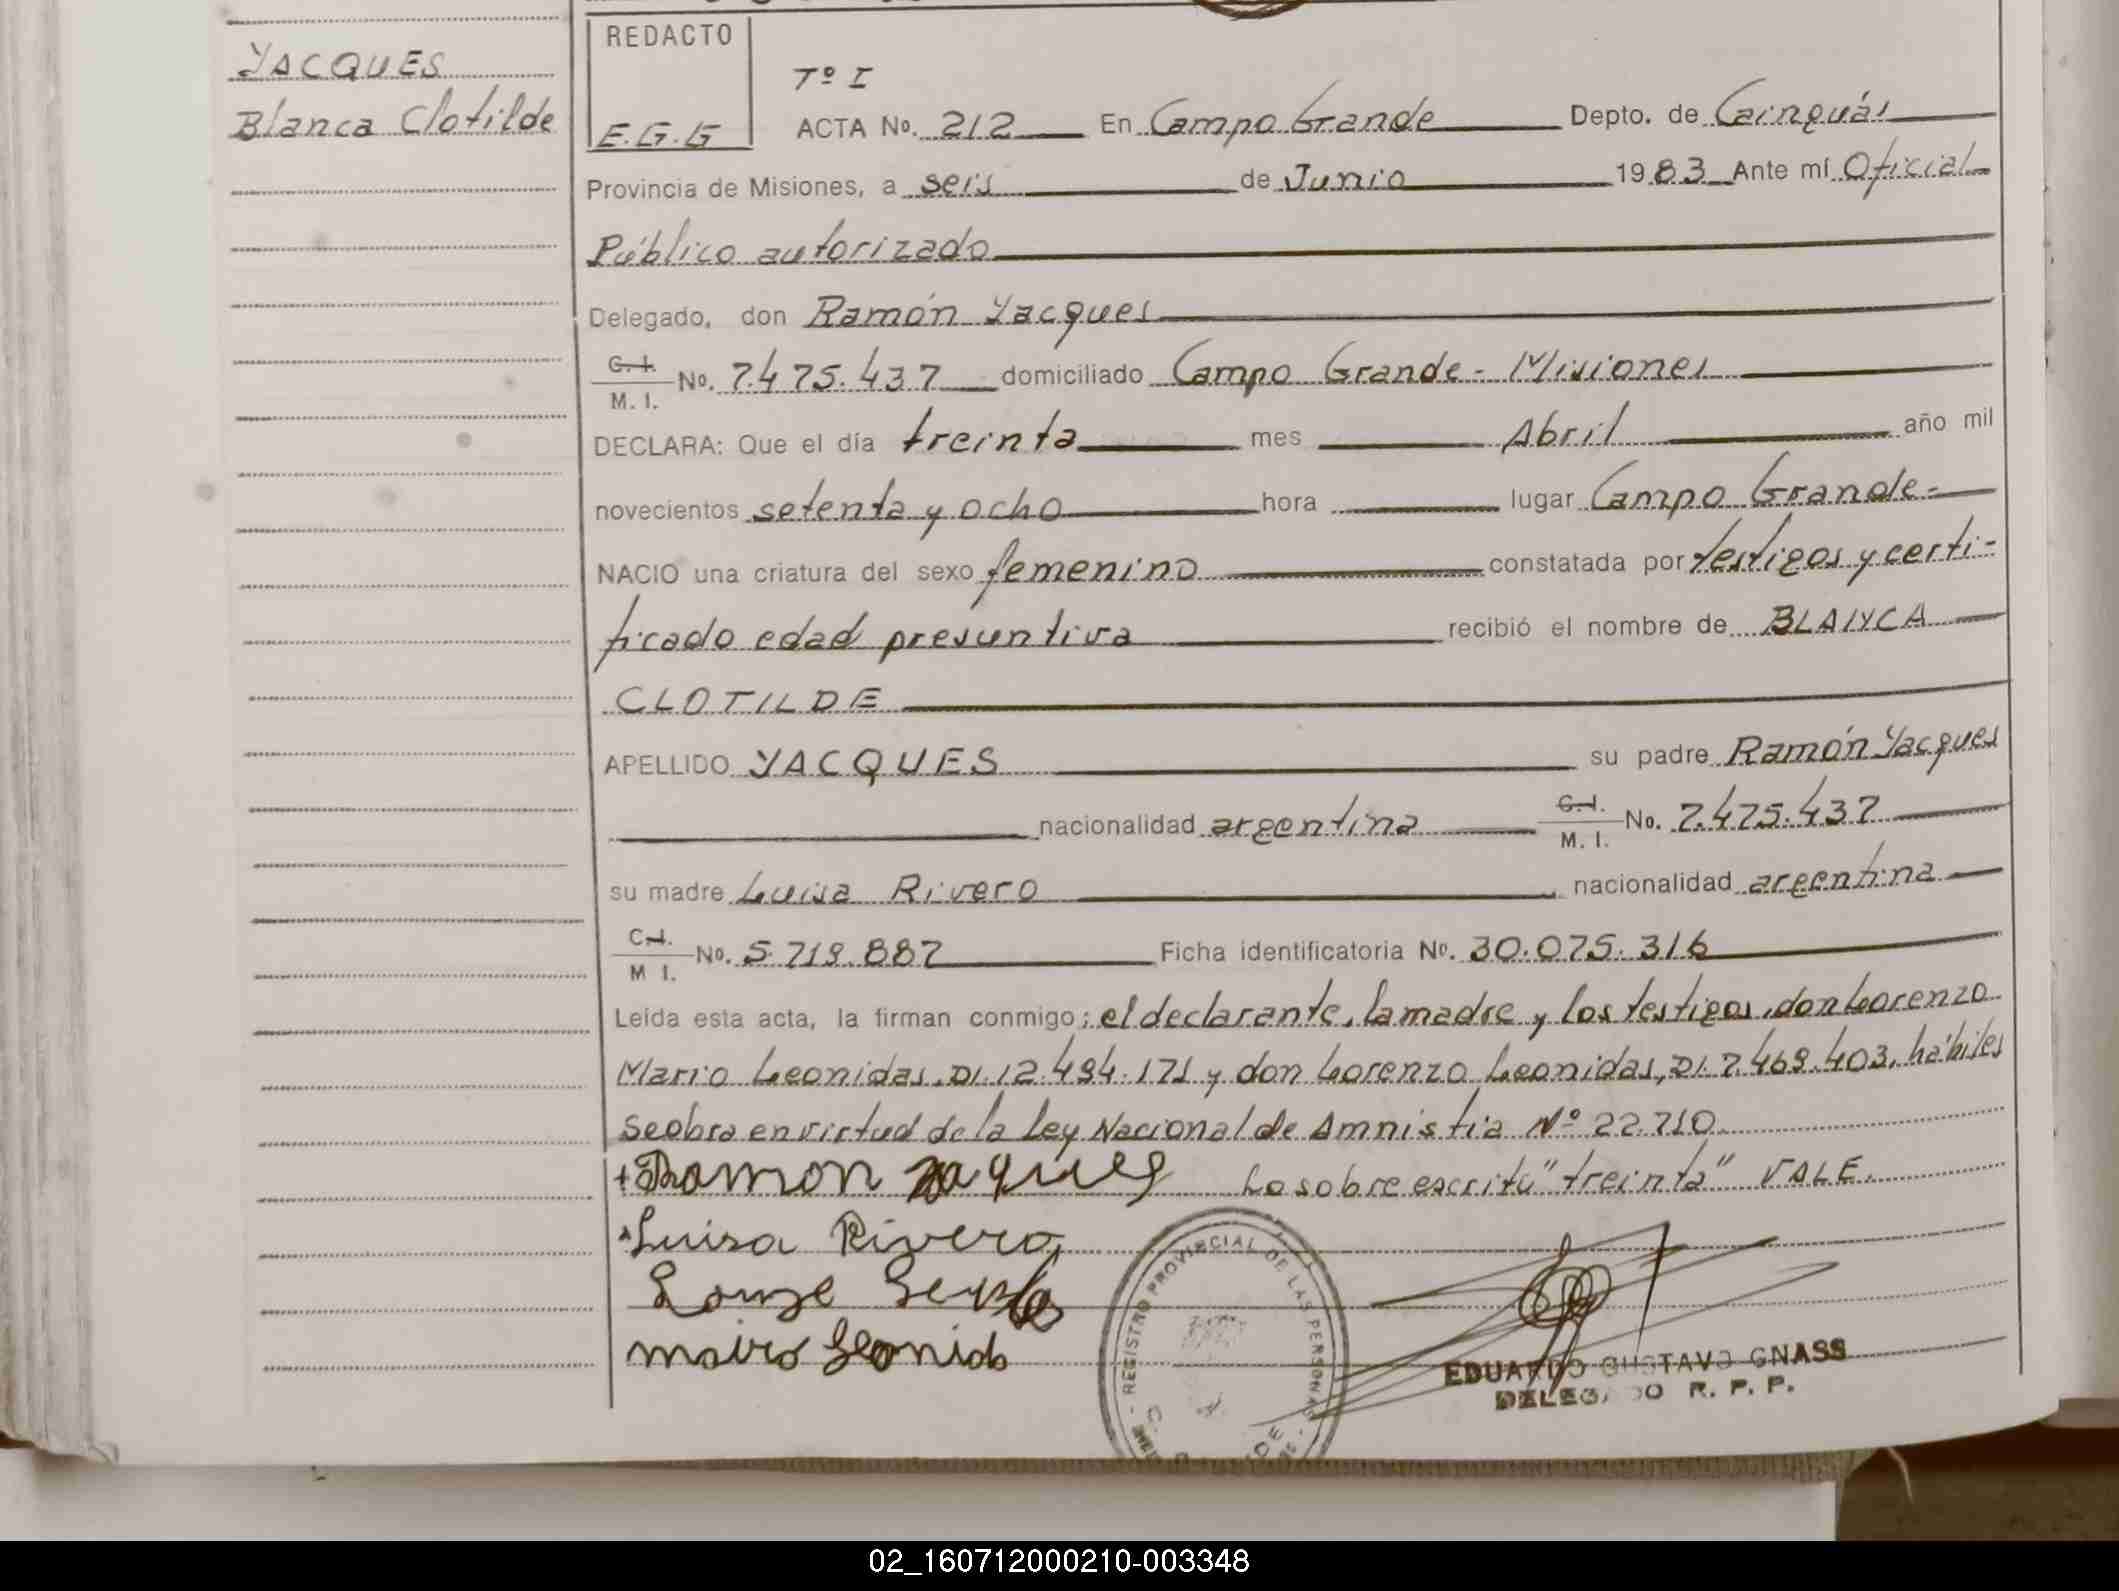 YACQUES
Blanca Clotilde
REDACTO
E.G.G
Tº I
ACTA No. 212 En Campo Grande Depto. de Cainguás
Provincia de Misiones, a seis de Junio 1983 Ante mí Oficial
Público autorizado
Delegado, don Ramón Yacques
C. I. M. I. No. 7.475.437 domiciliado Campo Grande - Misiones
DECLARA: Que el día treinta mes Abril año mil
novecientos setenta y ocho hora lugar Campo Grande-
NACIO una criatura del sexo femenino constatada por testigos y certi-
ficado edad presuntiva recibió el nombre de BLANCA
CLOTILDE
APELLIDO YACQUES su padre Ramón Yacques
nacionalidad argentina C. I. M. I. No. 7.475.437
su madre Luisa Rivero nacionalidad argentina
C. I. M I. No. 5.719.887 Ficha identificatoria No. 30.075.316
Leída esta acta, la firman conmigo; el declarante, la madre y los testigos, don Lorenzo
Mario Leonidas, DI. 12.494.171 y don Lorenzo Leonidas, DI. 7.469.403, hábiles
se obra en virtud de la Ley Nacional de Amnistia Nº 22.710.
+Ramon Yaques Lo sobre escrito "treinta" VALE.
Luisa Rivero
EDUARDO GUSTAVO GNASS
DELEGADO R. P. P.
REGISTRO PROVINCIAL DE LAS PERSONAS
02_160712000210-003348